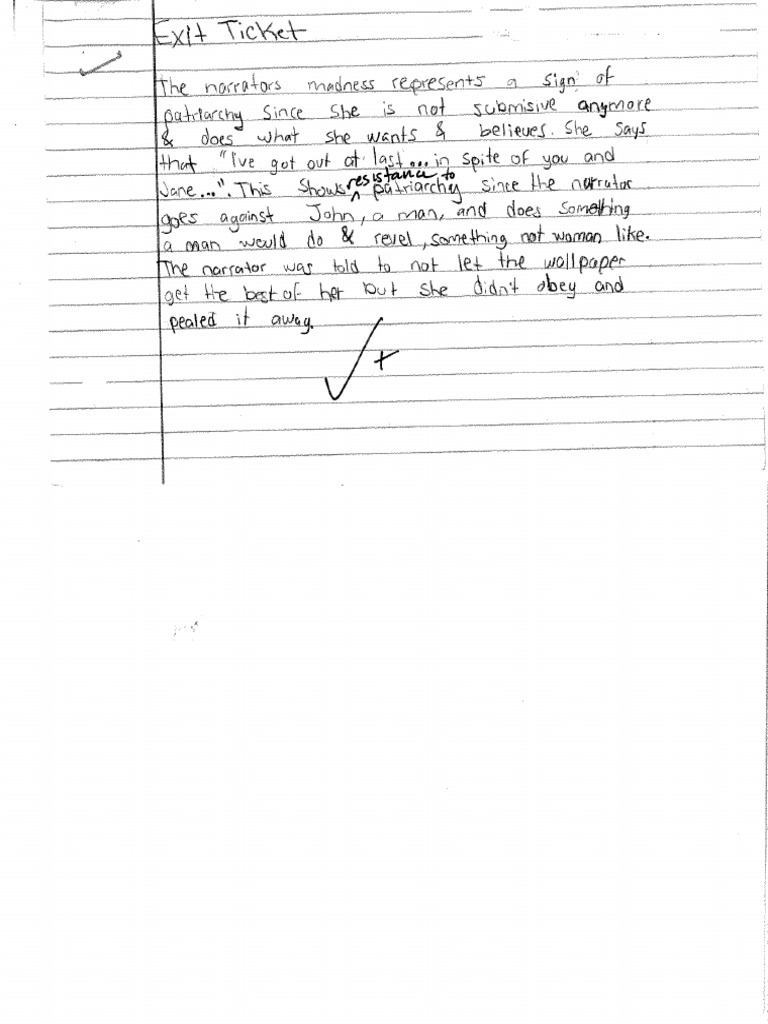 Exit Ticket
The narrators madness represents a sign of
patriarchy since she is not submisive anymore
& does what she wants & believes. She says
that "I've got out at last... in spite of you and
Jane...". This shows resistance to patriarchy since the narrator
goes against John, a man, and does something
a man would do & revel, something not woman like.
The narrator was told to not let the wallpaper
get the best of her but she didn't obey and
pealed it away.
+